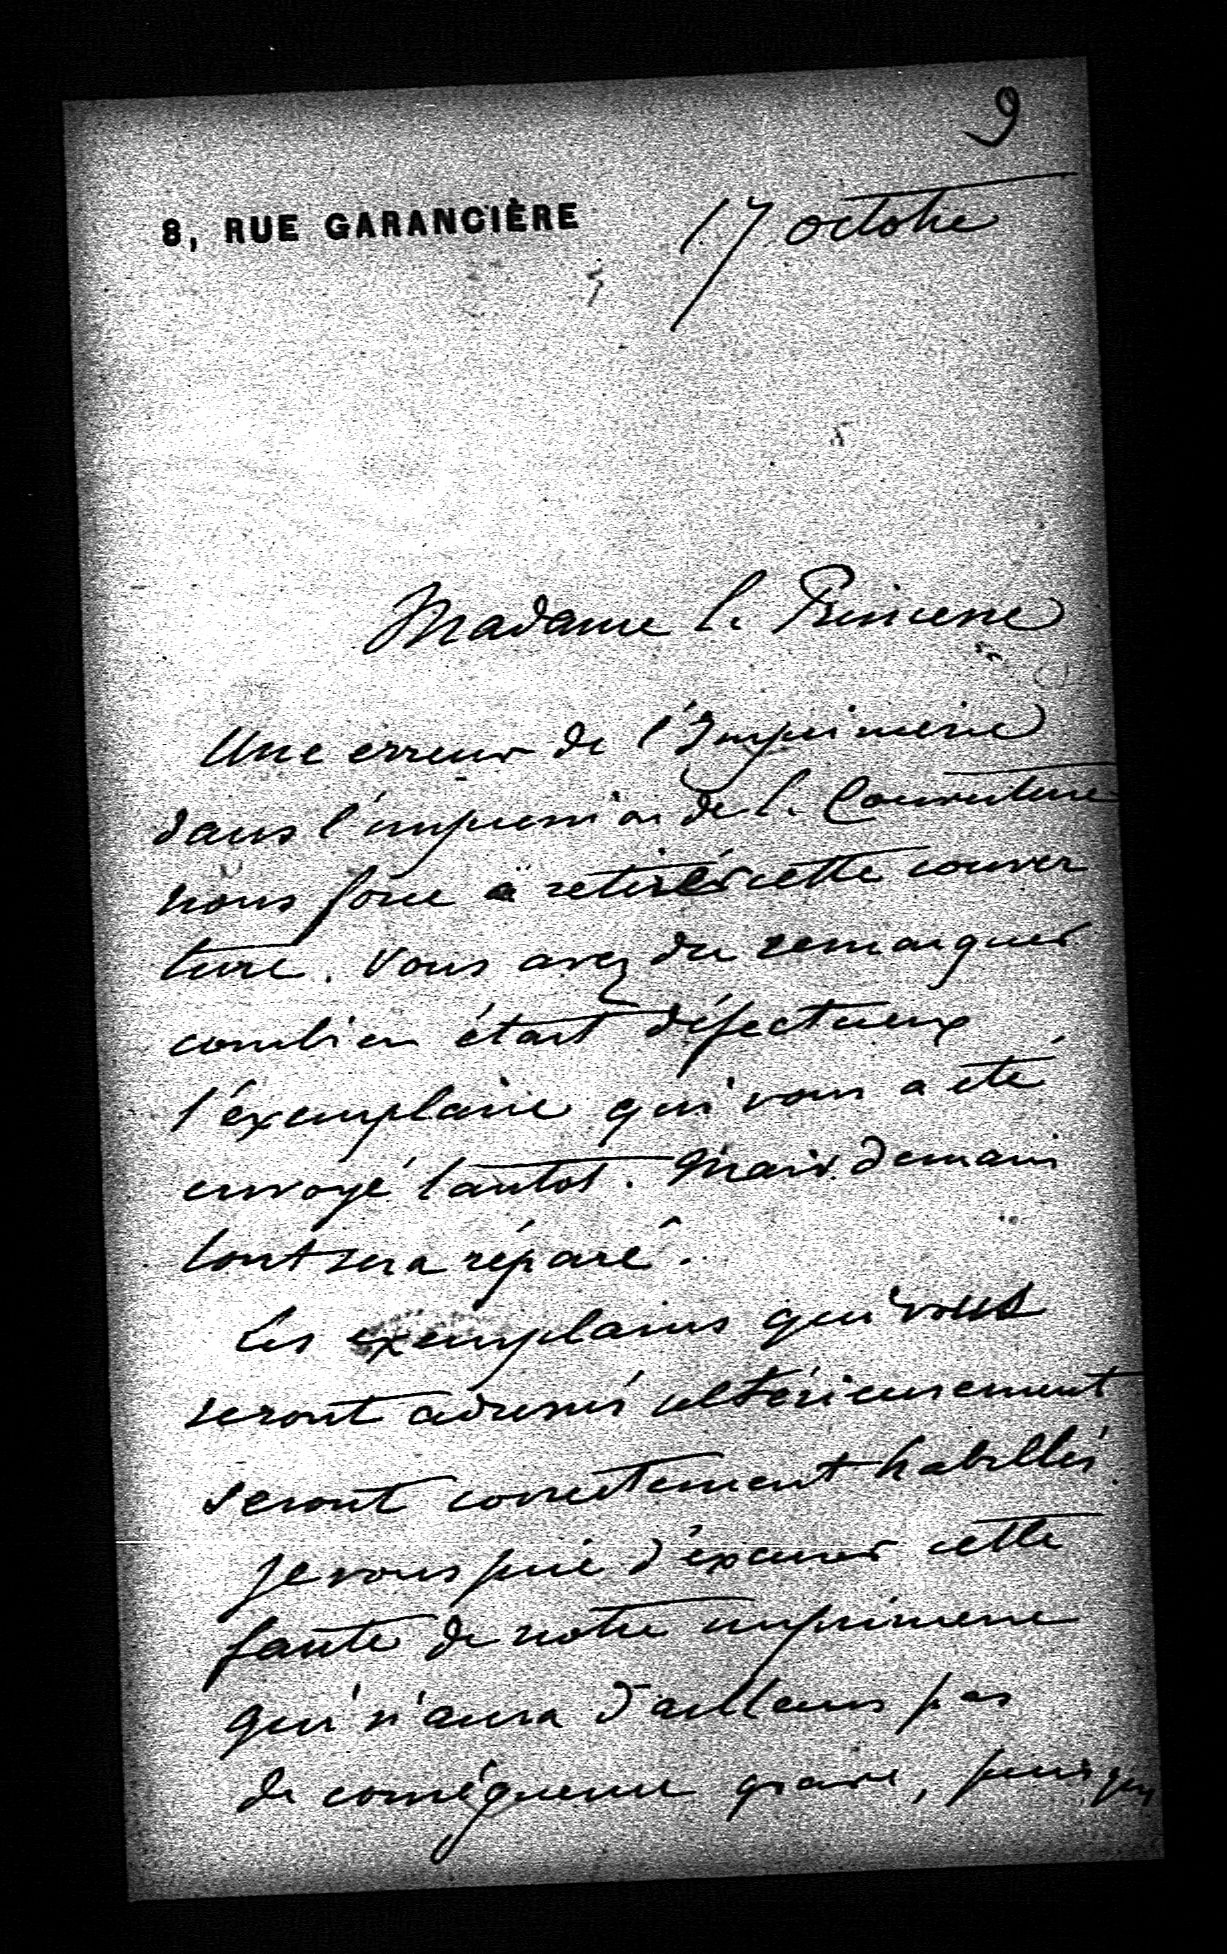 9
8, RUE GARANCIÈRE
17 octobre
Madame la Princesse
Une erreur de l'Imprimerie
dans l'impression de la Couverture
nous force à retirer cette couver
ture. Vous avez du remarquer
combien était défectueux
l'éxemplaire qui vous a été
envoyé tantot. Mais demain
tout sera réparé.
Les exemplaires qui vous
seront adressés ultérieurement
seront correctement habillés.
Je vous prie d'éxcuser cette
faute de notre imprimerie
qui n'aura d'ailleurs pas
de conséquence grave, puisque